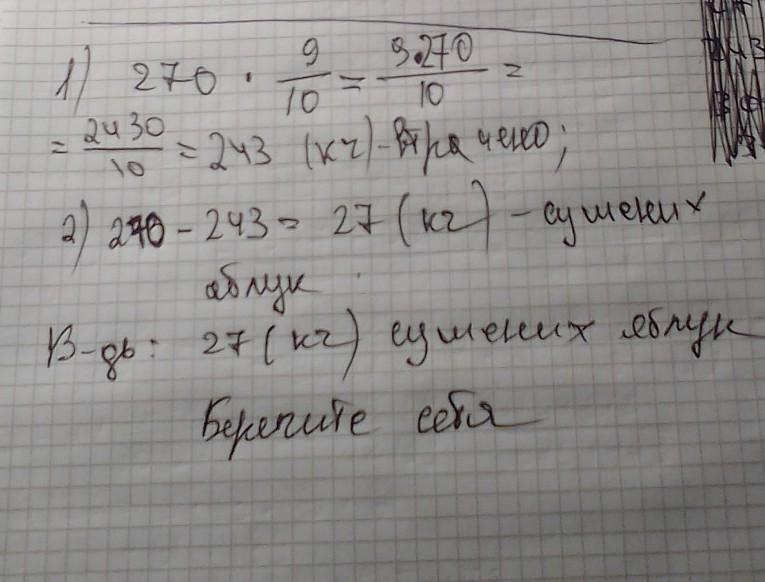 1) 270 · 9/10 = 9·270/10 =
= 2430/10 = 243 (кг) - втрачено;
2) 270 - 243 = 27 (кг) - сушених
яблук
В-дь: 27 (кг) сушених яблук
Берегите себя